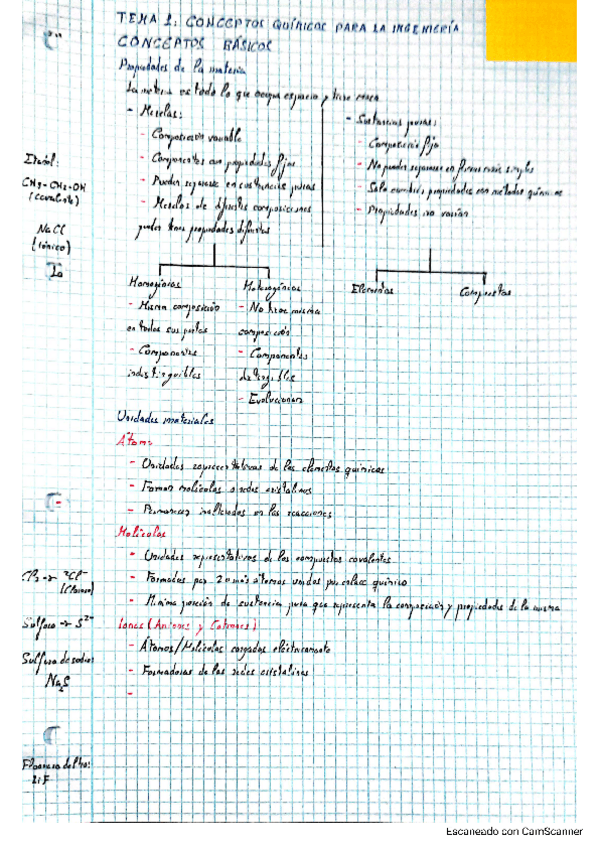 TEMA 1: CONCEPTOS QUÍMICOS PARA LA INGENIERÍA
CONCEPTOS BÁSICOS
Propiedades de la materia
La materia es todo lo que ocupa espacio y tiene masa
- Mezclas:
- Composición variable
- Componentes con propiedades fijas
- Pueden separarse en sustancias puras
- Mezclas de difentes composiciones
pueden tener propiedades difentes
- Sustancias puras:
- Composición fija
- No pueden separarse en formas más simples
- Solo cambian propiedades con métodos químicos
- Propiedades no varían
Etanol:
CH3-CH2-OH
(covalente)
NaCl
(iónico)
Homogéneas
- Misma composición
en todas sus partes
- Componentes
indistinguibles
Heterogéneas
- No tiene misma
composición
- Componentes
- Evolucionan
Elementos
Compuestos
Unidades materiales
Átomo
- Unidades representativas de los elementos químicos
- Forman moléculas o redes cristalinas
- Permanecen inalterados en las reacciones
Moléculas
- Unidades representativas de los compuestos covalentes
- Formadas por 2 o más átomos unidos por enlace químico
- Mínima porción de sustancia pura que representa la composición y propiedades de la misma
Iones (Aniones y Cationes)
- Átomos/Moléculas cargados eléctricamente
- Formadoras de las redes cristalinas
-
Cl2 → 2Cl-
(Cloruro)
Sulfuro → S2-
Sulfuro de sodio:
Na2S
LiF
Escaneado con CamScanner